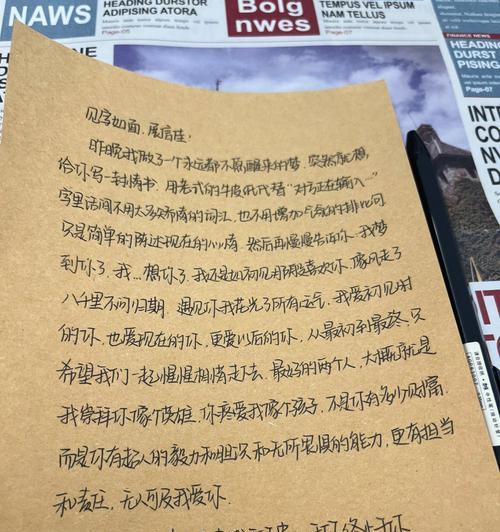 NAWS
HEADING DURSTOR
ADIPISING ATORA
Page-05
Bolg
nwes
TEMPUS VEL IPSUM
NAM TELLUS
Page-07
FINANCE NEWS
HEADING
DURST
PISING
Page-07
INTE
CO
NE
见字如面，展信佳：
昨晚我做了一个永远都不愿醒来的梦，突然就想，
给你写一封情书，用老式的牛皮纸代替“对方正在输入...”
字里话间不用太多矫情的词汇，也不用增加气氛的排比句
只是简单的陈述现在的心情，然后再慢慢告诉你，我梦
到你了，我...想你了，我还是如初见那般喜欢你，像风走了
八千里不问归期，遇见你我花光了所有运气，我爱初见时
的你，也爱现在的你，更爱以后的你，从最初到最终，只
希望我们一起惺惺相惜走下去，最好的两个人，大概就是
我崇拜你像个英雄，你疼爱我像个孩子，不是你有多少财富，
而是你有超人的毅力和胆识和无所畏惧的能力，更有担当
和责任，无人可及我爱你.